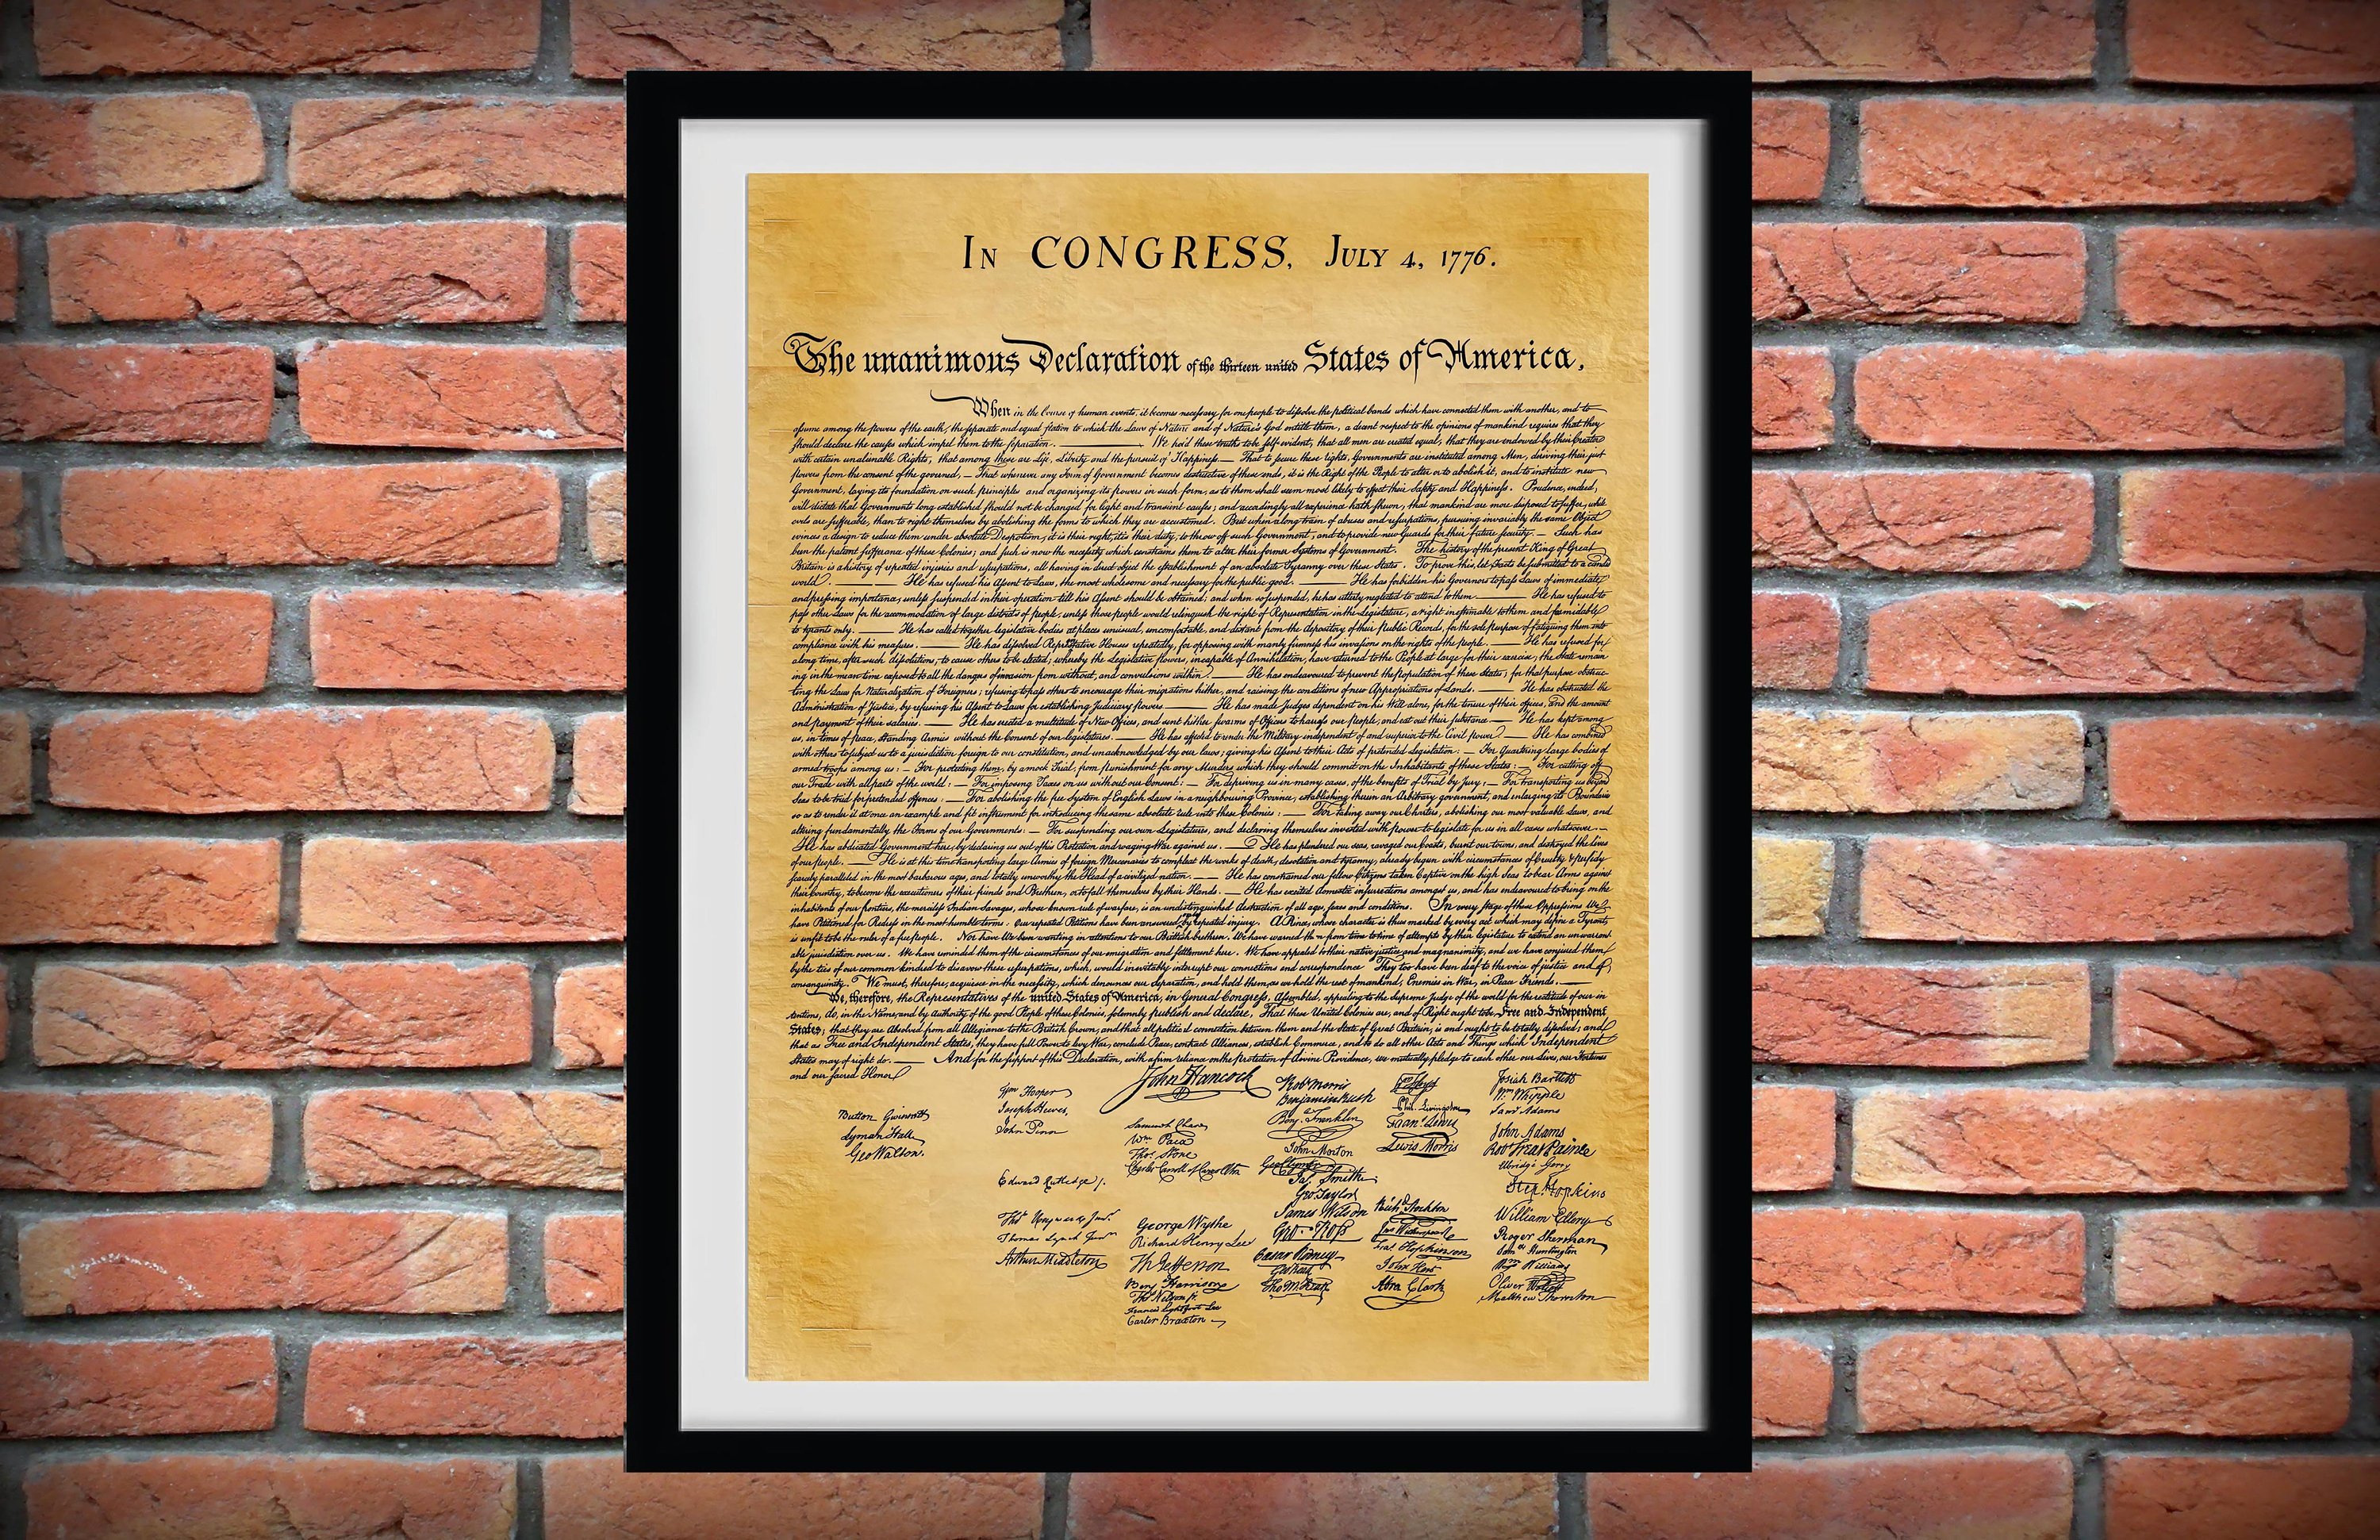 IN CONGRESS, JULY 4, 1776.
The unanimous Declaration of the thirteen united States of America,
When in the Course of human events, it becomes necessary for one people to dissolve the political bands which have connected them with another, and to
assume among the powers of the earth, the separate and equal station to which the Laws of Nature and of Nature's God entitle them, a decent respect to the opinions of mankind requires that they
should declare the causes which impel them to the separation. — We hold these truths to be self-evident, that all men are created equal, that they are endowed by their Creator
with certain unalienable Rights, that among these are Life, Liberty and the pursuit of Happiness — That to secure these rights, Governments are instituted among Men, deriving their just
powers from the consent of the governed, — That whenever any Form of Government becomes destructive of these ends, it is the Right of the People to alter or to abolish it, and to institute new
Government, laying its foundation on such principles and organizing its powers in such form, as to them shall seem most likely to effect their Safety and Happiness. Prudence, indeed,
will dictate that Governments long established should not be changed for light and transient causes; and accordingly all experience hath shewn, that mankind are more disposed to suffer, while
evils are sufferable, than to right themselves by abolishing the forms to which they are accustomed. But when a long train of abuses and usurpations, pursuing invariably the same Object
evinces a design to reduce them under absolute Despotism, it is their right, it is their duty, to throw off such Government, and to provide new Guards for their future security. — Such has
been the patient sufferance of these Colonies; and such is now the necessity which constrains them to alter their former Systems of Government. The history of the present King of Great
Britain is a history of repeated injuries and usurpations, all having in direct object the establishment of an absolute Tyranny over these States. To prove this, let Facts be submitted to a candid
world. — He has refused his Assent to Laws, the most wholesome and necessary for the public good. — He has forbidden his Governors to pass Laws of immediate
and pressing importance, unless suspended in their operation till his Assent should be obtained; and when so suspended, he has utterly neglected to attend to them. — He has refused to
pass other Laws for the accommodation of large districts of people, unless those people would relinquish the right of Representation in the Legislature, a right inestimable to them and formidable
to tyrants only. — He has called together legislative bodies at places unusual, uncomfortable, and distant from the depository of their public Records, for the sole purpose of fatiguing them into
compliance with his measures. — He has dissolved Representative Houses repeatedly, for opposing with manly firmness his invasions on the rights of the people. — He has refused for
a long time, after such dissolutions, to cause others to be elected; whereby the Legislative powers, incapable of Annihilation, have returned to the People at large for their exercise; the State remain
ing in the mean time exposed to all the dangers of invasion from without, and convulsions within. — He has endeavoured to prevent the population of these States; for that purpose obstruc
ting the Laws for Naturalization of Foreigners; refusing to pass others to encourage their migrations hither, and raising the conditions of new Appropriations of Lands. — He has obstructed the
Administration of Justice, by refusing his Assent to Laws for establishing Judiciary powers — He has made Judges dependent on his Will alone, for the tenure of their offices, and the amount
and payment of their salaries. — He has erected a multitude of New Offices, and sent hither swarms of Officers to harrass our people, and eat out their substance. — He has kept among
us, in times of peace, Standing Armies without the Consent of our legislatures. — He has affected to render the Military independent of and superior to the Civil power. — He has combined
with others to subject us to a jurisdiction foreign to our constitution, and unacknowledged by our laws; giving his Assent to their Acts of pretended Legislation: — For Quartering large bodies of
armed troops among us: — For protecting them, by a mock Trial, from punishment for any Murders which they should commit on the Inhabitants of these States: — For cutting off
our Trade with all parts of the world: — For imposing Taxes on us without our Consent: — For depriving us in many cases, of the benefits of Trial by Jury; — For transporting us beyond
Seas to be tried for pretended offences: — For abolishing the free System of English Laws in a neighbouring Province, establishing therein an Arbitrary government, and enlarging its Boundaries
so as to render it at once an example and fit instrument for introducing the same absolute rule into these Colonies: — For taking away our Charters, abolishing our most valuable Laws, and
altering fundamentally the Forms of our Governments: — For suspending our own Legislatures, and declaring themselves invested with power to legislate for us in all cases whatsoever. —
He has abdicated Government here, by declaring us out of his Protection and waging War against us. — He has plundered our seas, ravaged our Coasts, burnt our towns, and destroyed the lives
of our people. — He is at this time transporting large Armies of foreign Mercenaries to compleat the works of death, desolation and tyranny, already begun with circumstances of Cruelty & perfidy
scarcely paralleled in the most barbarous ages, and totally unworthy the Head of a civilized nation. — He has constrained our fellow Citizens taken Captive on the high Seas to bear Arms against
their Country, to become the executioners of their friends and Brethren, or to fall themselves by their Hands. — He has excited domestic insurrections amongst us, and has endeavoured to bring on the
inhabitants of our frontiers, the merciless Indian Savages, whose known rule of warfare, is an undistinguished destruction of all ages, sexes and conditions. In every stage of these Oppressions We
have Petitioned for Redress in the most humble terms: Our repeated Petitions have been answered only by repeated injury. A Prince, whose character is thus marked by every act which may define a Tyrant,
is unfit to be the ruler of a free people. Nor have We been wanting in attentions to our British brethren. We have warned them from time to time of attempts by their legislature to extend an unwarrant
able jurisdiction over us. We have reminded them of the circumstances of our emigration and settlement here. We have appealed to their native justice and magnanimity, and we have conjured them
by the ties of our common kindred to disavow these usurpations, which, would inevitably interrupt our connections and correspondence They too have been deaf to the voice of justice and of
consanguinity. We must, therefore, acquiesce in the necessity, which denounces our Separation, and hold them, as we hold the rest of mankind, Enemies in War, in Peace Friends. —
We, therefore, the Representatives of the united States of America, in General Congress, Assembled, appealing to the Supreme Judge of the world for the rectitude of our in
tentions, do, in the Name, and by Authority of the good People of these Colonies, solemnly publish and declare, That these United Colonies are, and of Right ought to be Free and Independent
States; that they are Absolved from all Allegiance to the British Crown, and that all political connection between them and the State of Great Britain, is and ought to be totally dissolved; and
that as Free and Independent States, they have full Power to levy War, conclude Peace, contract Alliances, establish Commerce, and to do all other Acts and Things which Independent
States may of right do. — And for the support of this Declaration, with a firm reliance on the protection of divine Providence, we mutually pledge to each other our Lives, our Fortunes
and our sacred Honor
Button Gwinnett
Lyman Hall
Geo Walton.
Wm Hooper
Joseph Hewes,
John Penn
Edward Rutledge /.
Thos Heyward Junr.
Thomas Lynch Junr.
Arthur Middleton
John Hancock
Samuel Chase
Wm Paca
Thos. Stone
Charles Carroll of Carrollton
George Wythe
Richard Henry Lee
Th Jefferson
Benj Harrison
Thos Nelson jr.
Francis Lightfoot Lee
Carter Braxton
Robt Morris
Benjamin Rush
Benja. Franklin
John Morton
Geo Clymer
Jas. Smith
Geo. Taylor
James Wilson
Geo. Ross
Caesar Rodney
Geo Read
Tho M:Kean
Wm Floyd
Phil. Livingston
Frans. Lewis
Lewis Morris
Richd. Stockton
Jno Witherspoon
Fras. Hopkinson
John Hart
Abra Clark
Josiah Bartlett
Wm. Whipple
Saml Adams
John Adams
Robt Treat Paine
Elbridge Gerry
Step. Hopkins
William Ellery
Roger Sherman
Saml Huntington
Wm Williams
Oliver Wolcott
Matthew Thornton